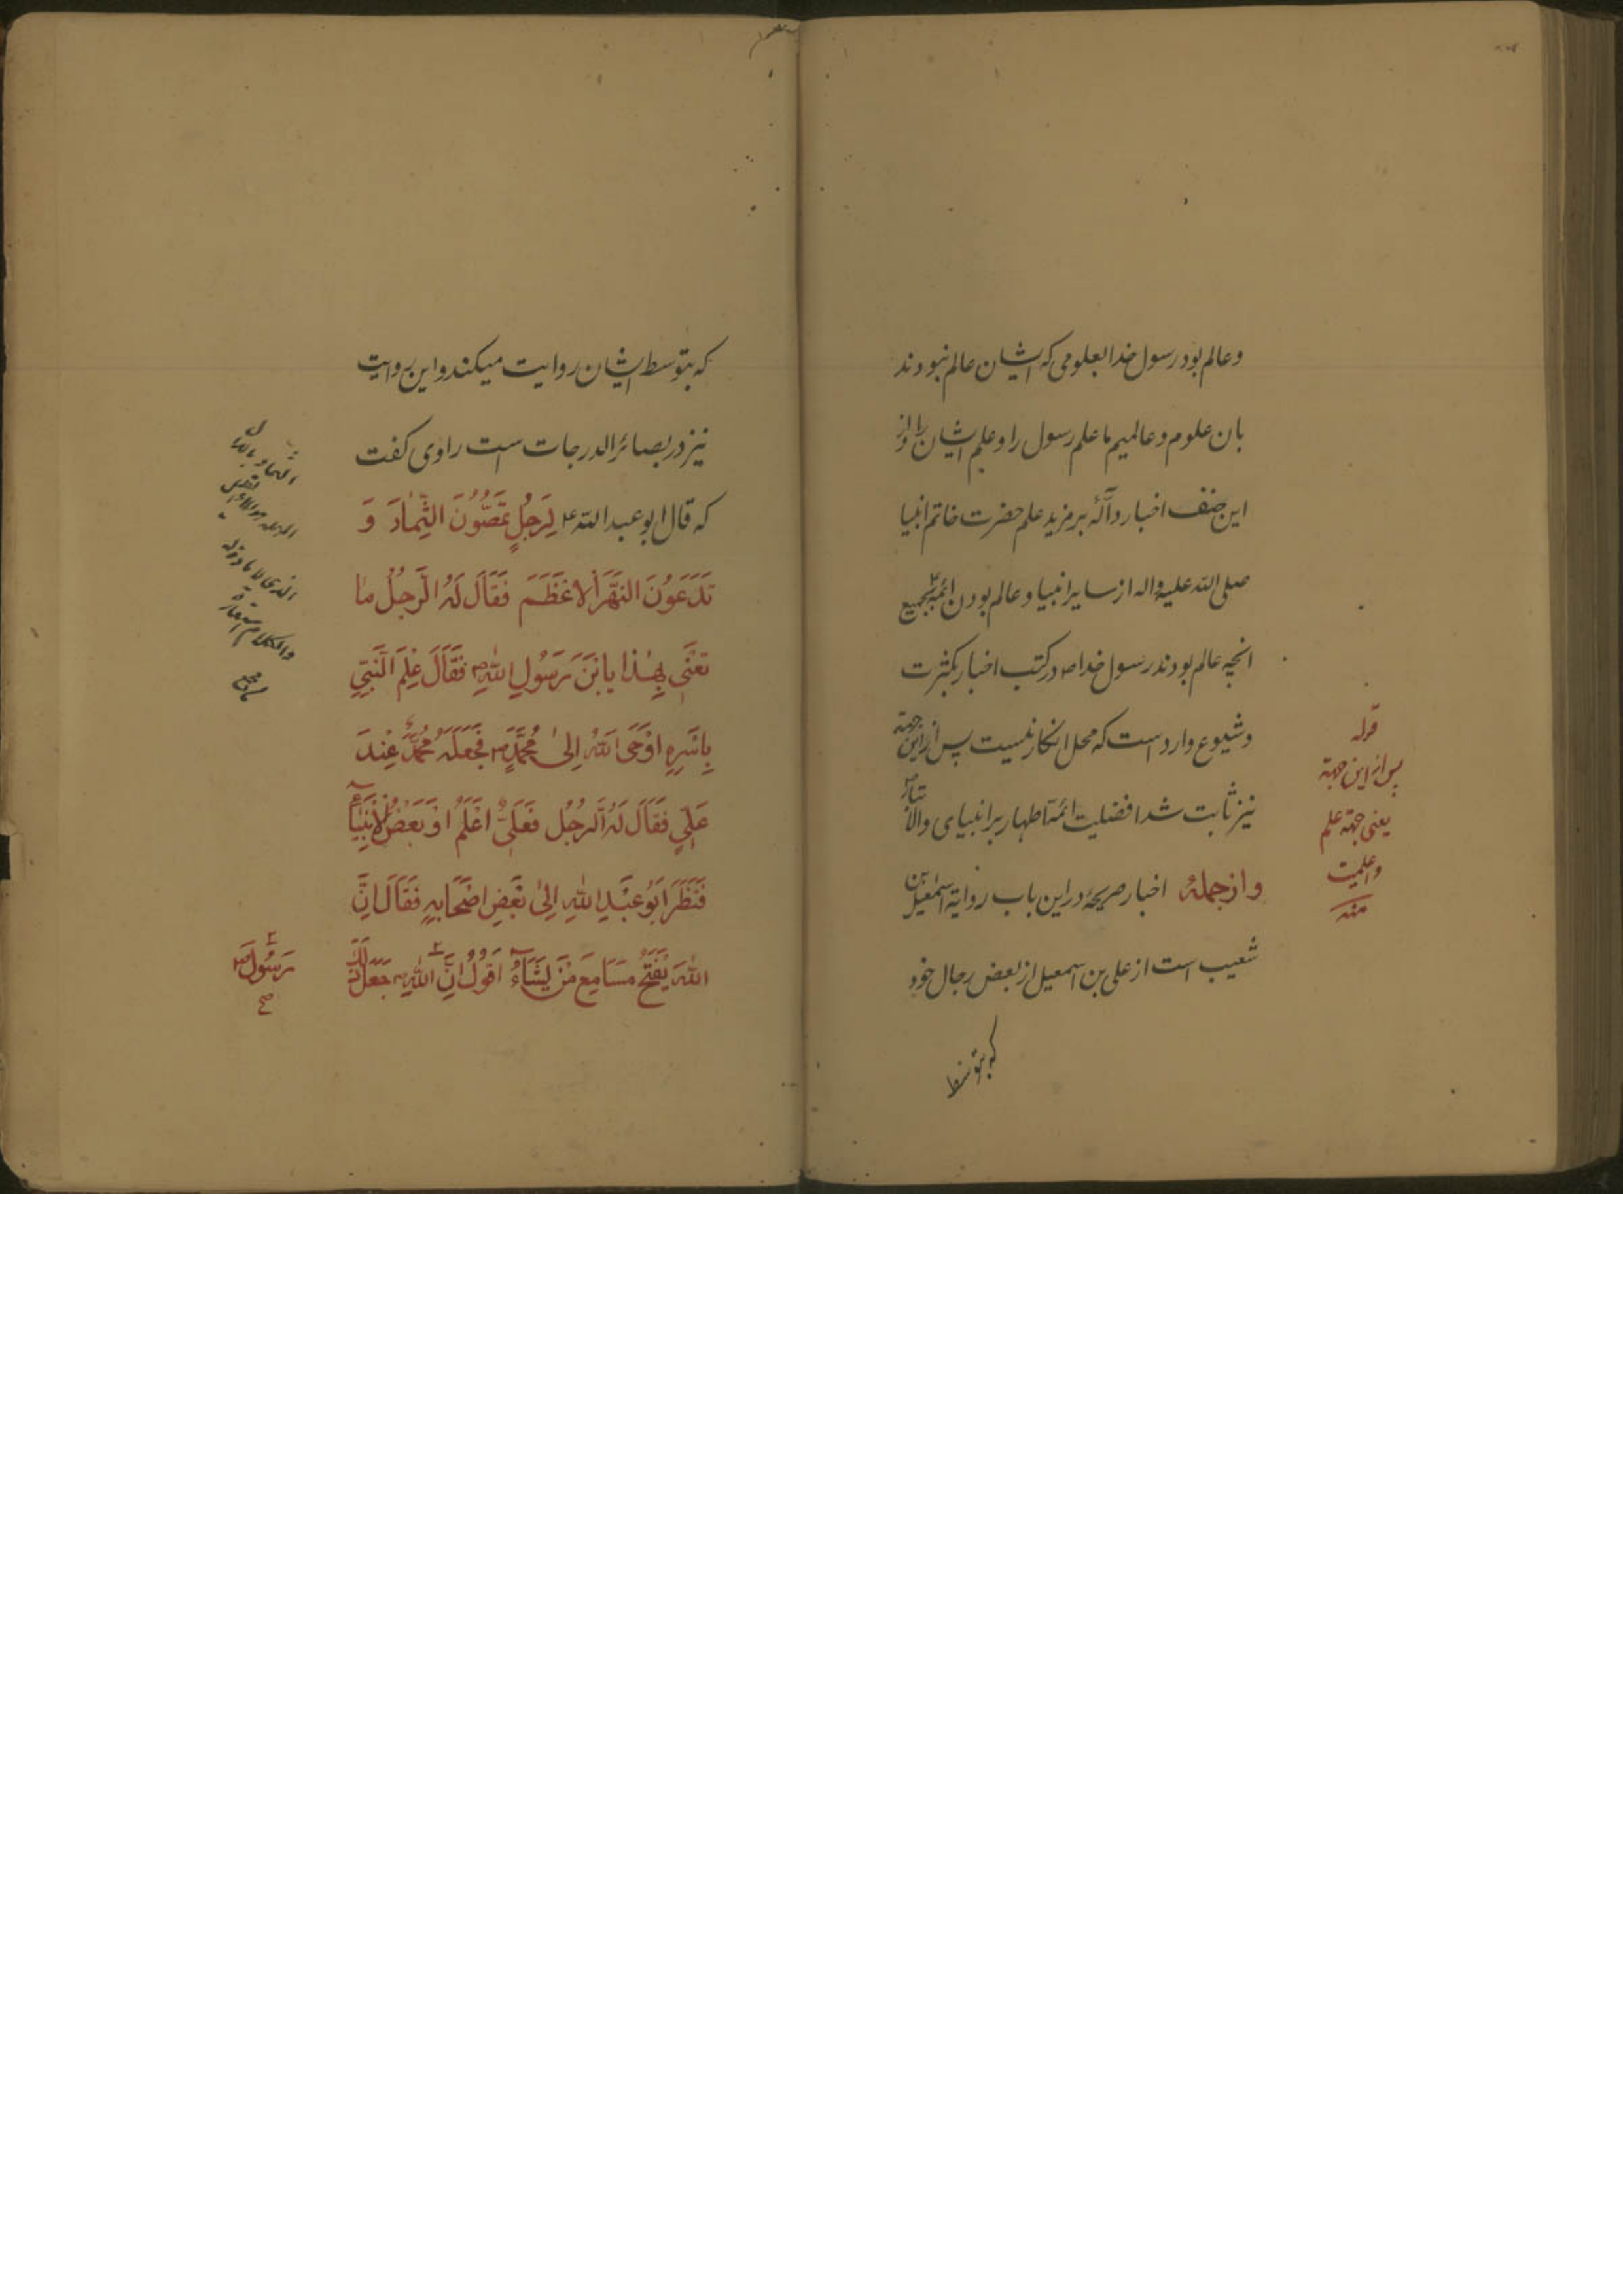 وعالم بود رسول خدا بعلومی که ایشان عالم نبودند
بان علوم و عالمیم ما علم رسول را و علم ایشان را و از
این صنف اخبار دآلّه بر مزید علم حضرت خاتم انبیا
صلی الله علیه واله از سایر انبیا و عالم بودن ائمه بجمیع
انچه عالم بودند رسول خدا ص در کتب اخبار بکثرت
وشیوع وارد است که محل انکار نیست پس از این جهة
نیز ثابت شد افضلیت ائمّه اطهار بر انبیای والا تبار
و از جملهٔ اخبار صریحهٔ در این باب روایة اسمعیل بن
شعیب است از علی بن اسمعیل از بعض رجال خود
که بتوسط
قوله
پس از این جهة
یعنی جهة علم
و اعلمیت
منه
که بتوسط ایشان روایت میکند و این روایت
نیز در بصائر الدرجات است راوی کفت
که قال ابو عبد الله ع لِرَجُلٍ تَمَصُّونَ الثِّمٰادَ وَ
تَدَعُونَ النَّهَرَ الاَعْظَمَ فَقَالَ لَهُ الرَّجُلُ مٰا
تَعْنی بِهٰذا یابْنَ رَسُولِ اللهِ ص فَقَالَ عِلْمَ النَّبِیّ
بِاَسْرِهِ اَوْحَی اللهُ اِلیٰ مُحَمَّدٍ ص فَجَعَلَهُ مُحَمَّدٌ عِنْدَ
عَلِیٍّ فَقَالَ لَهُ الرَّجُلُ فَعَلِیٌّ اَعْلَمُ اَوْ بَعْضُ الاَنْبِیٰاءِ
فَنَظَرَ اَبُو عَبْدِ اللهِ اِلیٰ بَعْضِ اَصْحَابِهِ فَقَالَ اِنَّ
اللهَ یَفْتَحُ مَسَامِعَ مَنْ یَشَاءُ اَقُولُ اِنَّ اللهِ ص جَعَلَ ذٰلِكَ
رَسُولَ
صح